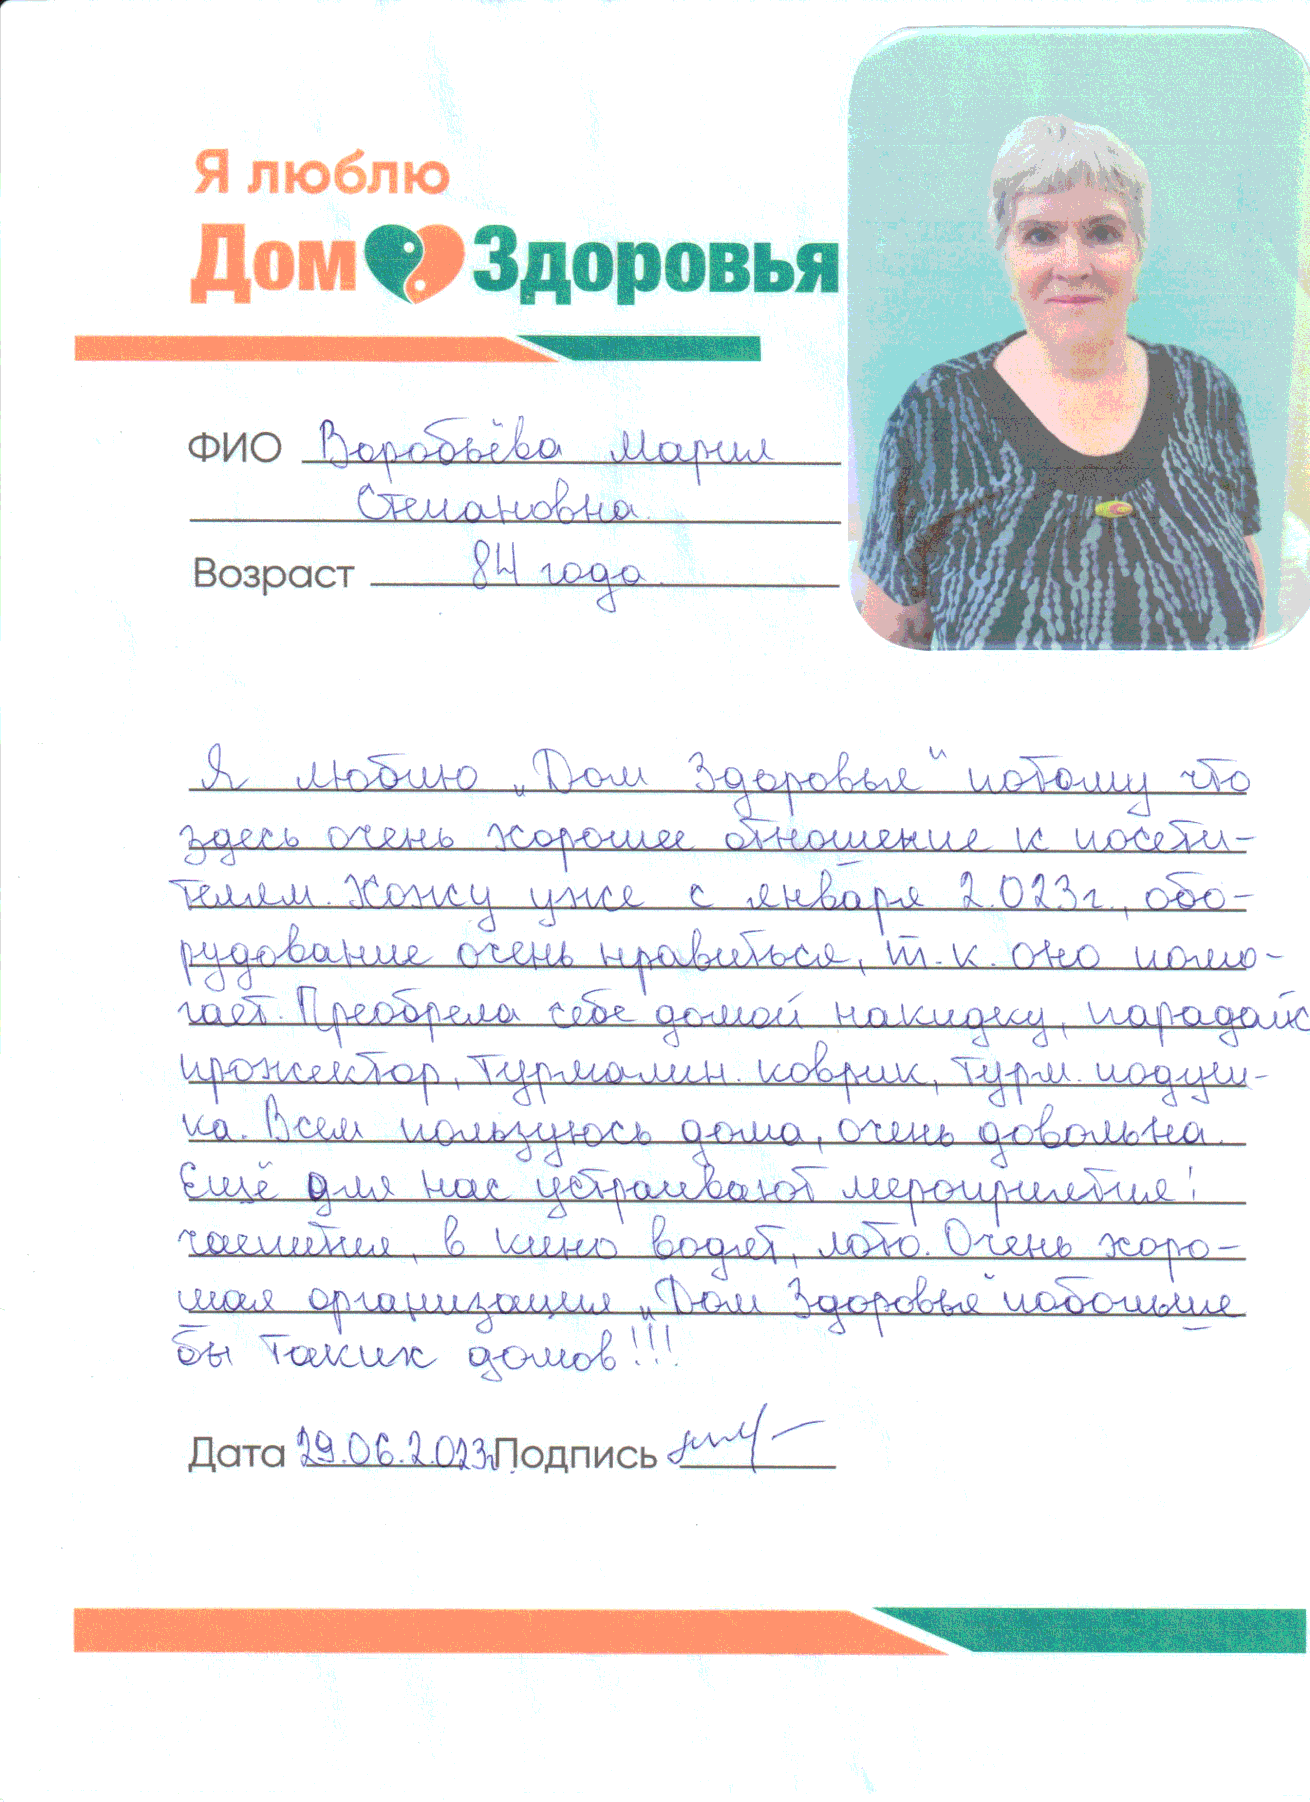 Я люблю
Дом Здоровья
ФИО Воробьёва Мария
Степановна.
Возраст 84 года.
Я люблю „Дом Здоровья" потому что
здесь очень хорошее отношение к посети-
телям. Хожу уже с января 2.023г., обо-
рудование очень нравиться, т.к. оно помо-
гает. Преобрела себе домой накидку, парадайс
прожектор, турмалин. коврик, турм. подуш-
ка. Всем пользуюсь дома, очень довольна.
Ещё для нас устраивают мероприятия:
чаепития, в кино водят, лото. Очень хоро-
шая организация „Дом Здоровья" побольше
бы таких домов!!!
Дата 29.06.2.023г. Подпись